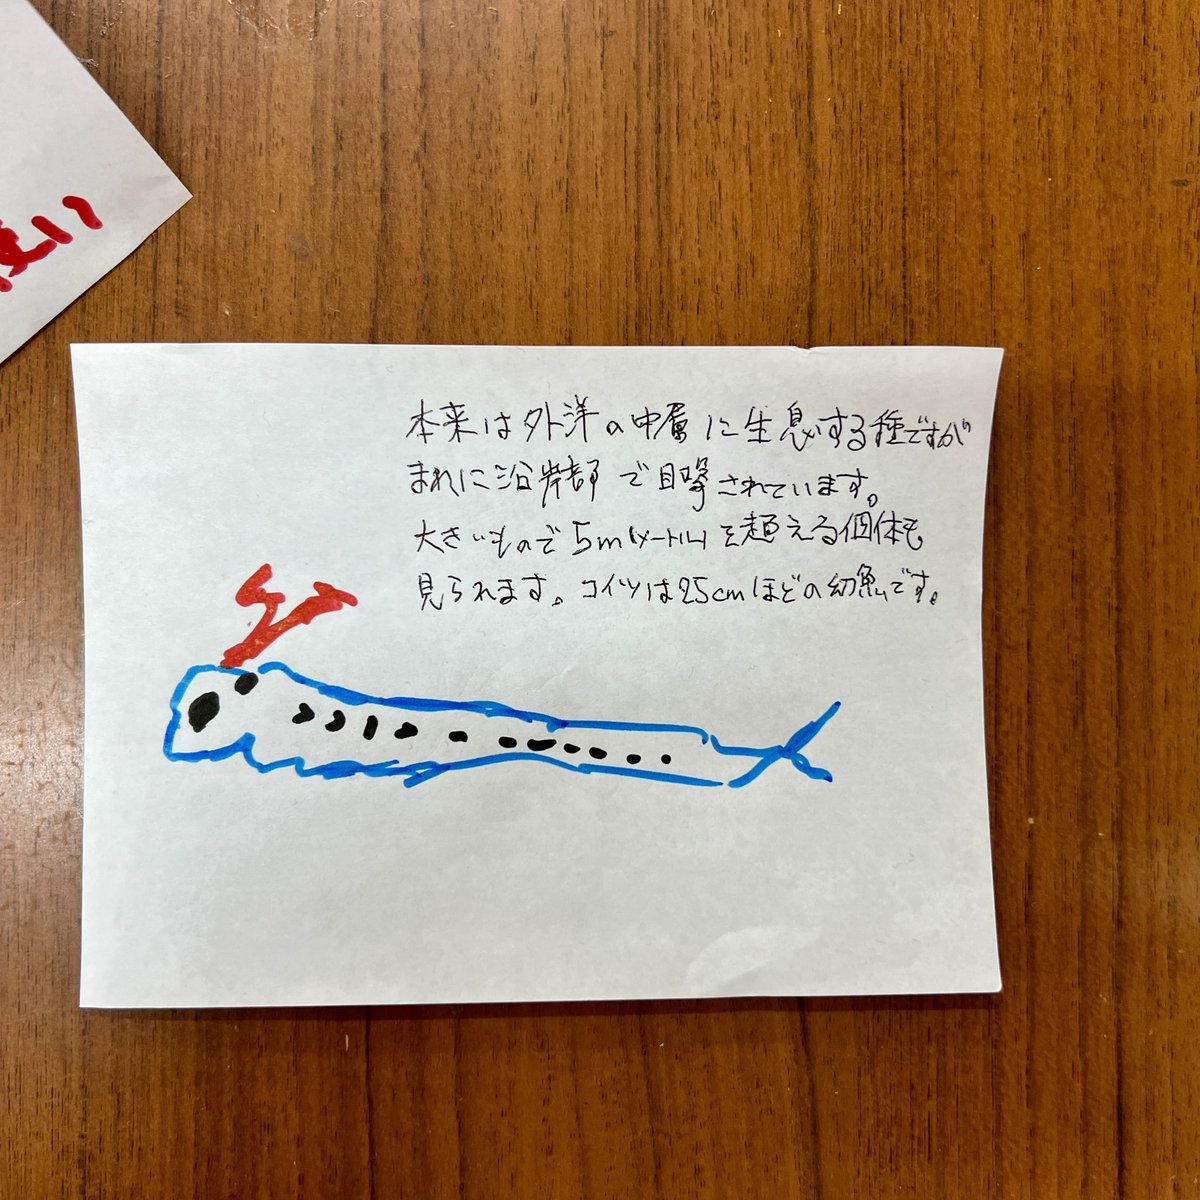 本来は外洋の中層に生息する種ですが
まれに沿岸部で目撃されています。
大きいもので5m(メートル)を超える個体も
見られます。コイツは25cmほどの幼魚です。